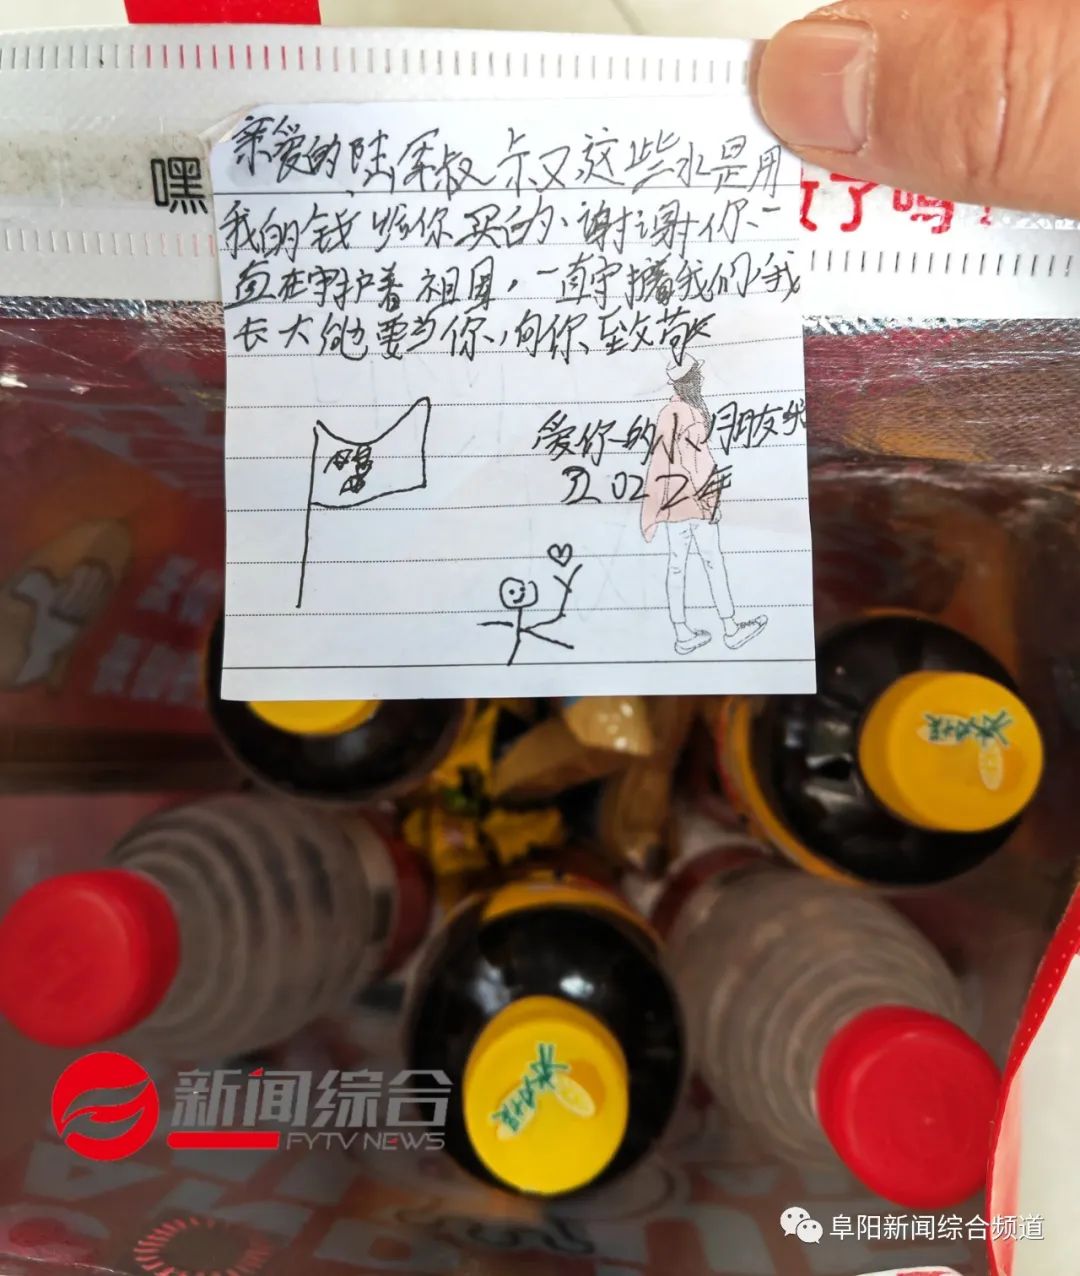 嘿
了吗？
亲爱的陆军叔叔，这些水是用
我的钱给你买的、谢谢你、一
直在守护着祖国，一直守护着我们，我
长大他要当你，向你致敬
爱你的小朋友
2022年
冰力橙
冰力橙
新闻综合
FYTV NEWS
阜阳新闻综合频道